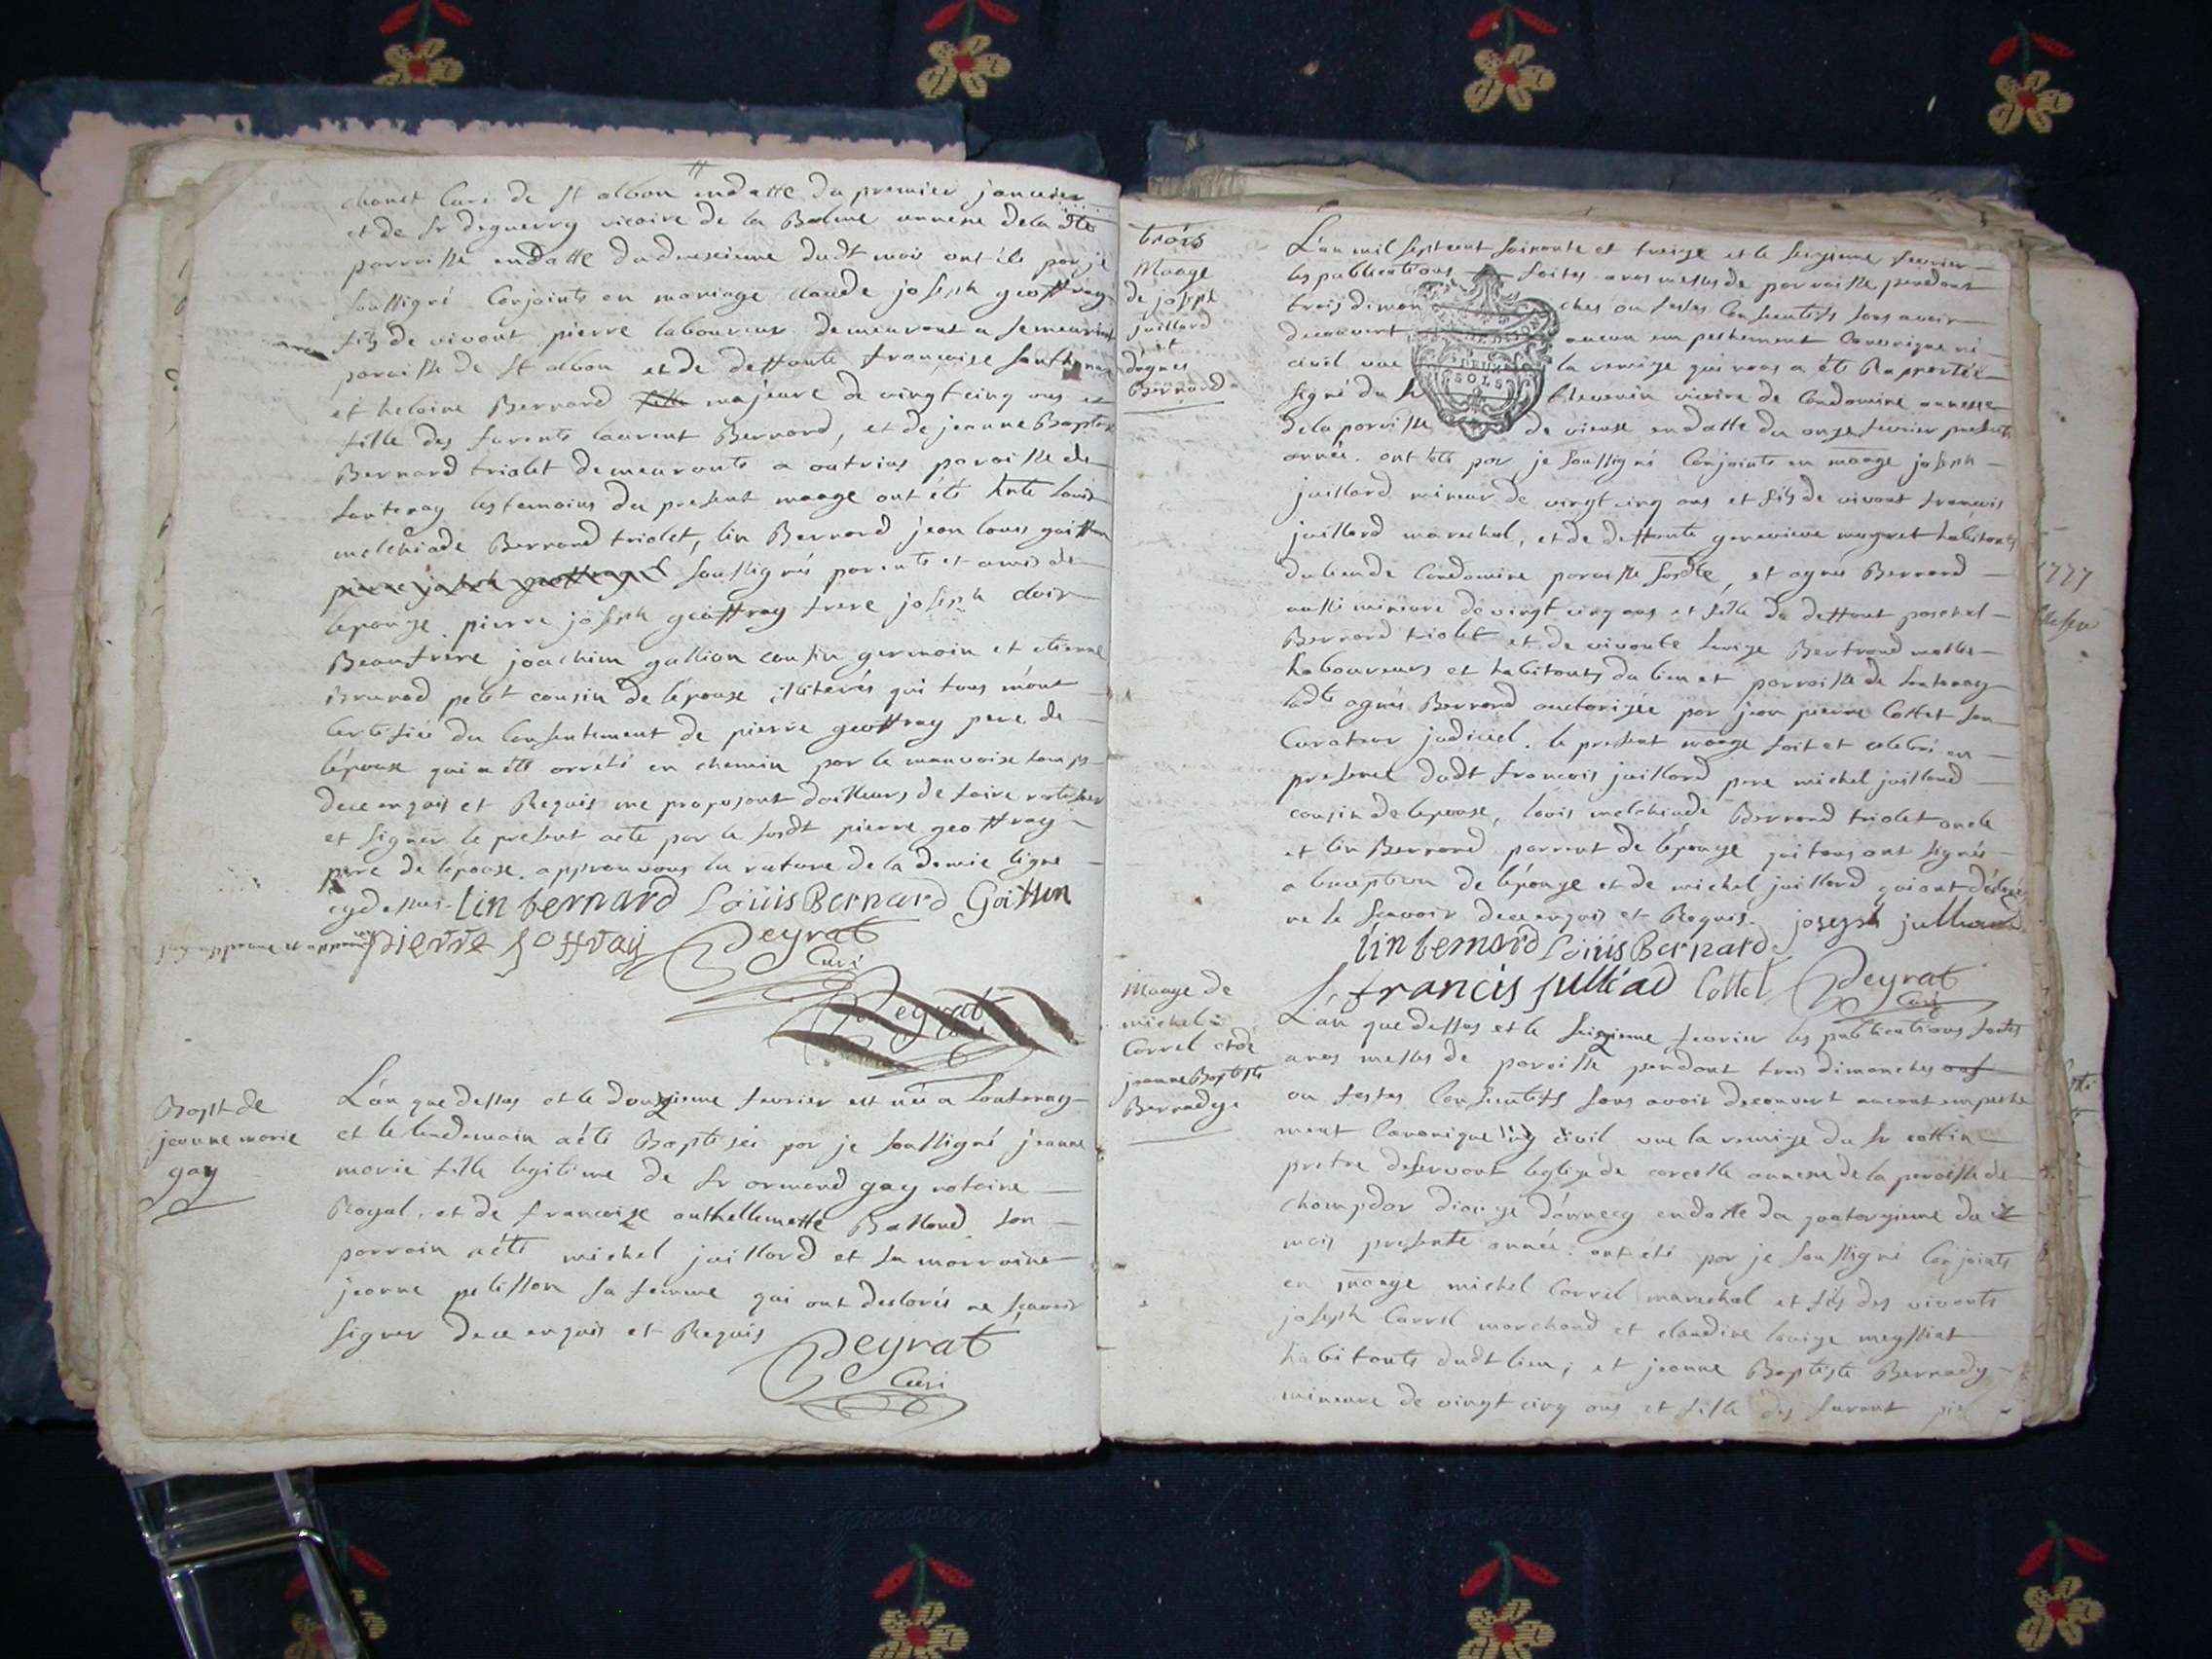 chanet Curé de St albon en datte du premier janvier
et de Sr deguerry vicaire de la Balme annexe de la dte
parroisse en datte du deuxieme dudt mois ont été par je
soussigné Conjoints en mariage claude joseph geoffray
fils de vivant pierre laboureur demeurant a
paroisse de St albon et de deffunte francoise
et helaine Bernard fille majeure de vingt cinq ans et
fille des furents laurent Bernard, et de jeanne Baptiste
Bernard triolet demeurants a outrias paroisse de
lantenay les temoins du present maage ont étés louis
melchiade Bernard triolet, lin Bernard jean louis goiffon
pierre joseph geoffray soussignés parents et amis de
lepouze. pierre joseph geoffray frere joseph
Beaufrere joachim gallion cousin germain et etienne
Brunod petit cousin de lépoux illiterés qui tous m'ont
Certifiés du Consentement de pierre geoffray pere de
lépoux qui a été arrété en chemin par le mauvaise temps
dece enquis et Requis me proposant dailleurs de faire
et signer le present acte par le susdt pierre geoffray
pere de lépoux. approuvons la rature de la demie ligne
cydessus. lin bernard Loüis Bernard Goiffon
pierre joffray Peyrat
Curé
Peyrat
Bapt de
jeanne marie
gay
L'an que dessus et le douzieme fevrier est née a Lantenay
et le lendemain a été Baptisée par je soussigné jeanne
marie fille legitime de Sr armand gay notaire
Royal, et de francoize anthellemette Balland. son
parrain a été michel juillard et sa marraine
jeanne pelisson sa femme qui ont declarés ne scavoir
signer dece enquis et Requis
Peyrat
Curé
trois
Maage
de joseph
juillard
et
d'agnes
Bernard
L'an mil septcent soixante et treize et le seizieme fevrier
les publications faites a nos messes de parroisse pendant
trois diman ches ou festes Consecutifs sans avoir
decouvert aucun empechement Canonique ni
civil vue la remize qui nous a été Rapportée
DEUX
SOLS
signé du Sr thevenin vicaire de Condamine annexe
de la parroisse de vieux en datte du onze fevrier presente
année. ont été par je soussigné Conjoints en maage joseph
juillard mineur de vingt cinq ans et fils de vivant francois
juillard marechal, et de deffunte genevieve habitants
du lieu de Condamine paroisse susdte, et agnes Bernard
aussi mineure de vingt cinq ans et fille du deffunt paschal
Bernard triolet et de vivante Bertrand
Laboureurs et habitants du lieu et parroisse de lantenay
ladte agnés Bernard auctorizée par jean pierre Cottet son
Curateur judiciel. le present maage fait et celebré en
presence dudt francois juillard pere michel juillard
cousin de lepoux, louis melchiade Bernard triolet oncle
et lin Bernard parrent de lépouze qui tous ont signés
a lexception de lépouze et de michel juillard qui ont déclarés
ne le scavoir dece enquis et Requis. joseph julliard
lin bernard Loüis Bernard
francis julliad Cottet Peyrat
Curé
Maage de
michel
Carrel et de
jeanne Baptiste
Bernady
L'an que dessus et le seizieme fevrier les publications faites
a nos messes de paroisse pendant trois dimanches
ou festes Consecutifs sans avoir decouvert aucunt empeche
ment Canonique ny civil vue la remize du Sr collin
pretre deservant leglize de corcelle annexe de la paroisse de
champdor dioceze d'annecy en datte du quatorzieme du
mois presente année. ont été par je soussigné Conjoints
en maage michel Carrel marechal et fils des vivants
joseph Carrel marchand et claudine louize meyssiat
habitants dudt lieu, et jeanne Baptiste Bernady
mineure de vingt cinq ans et fille des furent
1777